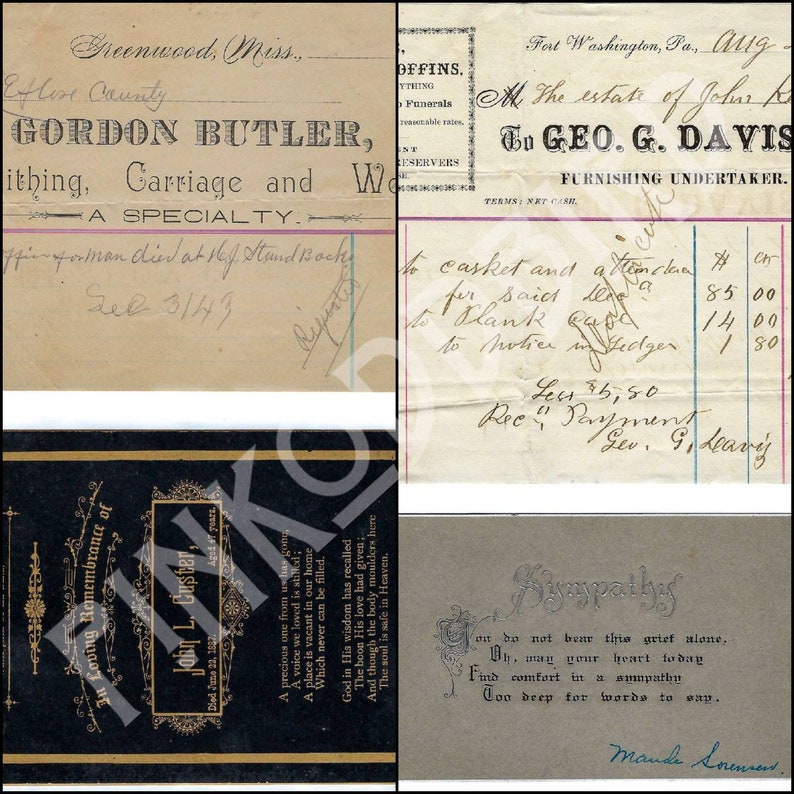 Greenwood, Miss.,
County
GORDON BUTLER,
ithing, Carriage and
A SPECIALTY.
for man died at
Dec 3149
OFFINS,
YTHING
Funerals
reasonable rates.
ENT
RESERVERS
SE.
Fort Washington, Pa., Aug
M The estate of John
To GEO. G. DAVIS
FURNISHING UNDERTAKER.
TERMS: NET CASH.
Duplicate
to casket and attendance
for said Dec'd 85 00
to Plank Case 14 00
to Notice in Ledger 1 80
Less $5,80
Rec'd Payment
Geo. G. Davis
In Loving Remembrance of
John L. Custer,
Died June 22, 1897. Aged 47 years.
A precious one from us has gone,
A voice we loved is stilled;
A place is vacant in our home
Which never can be filled.
God in His wisdom has recalled
The boon His love had given;
And though the body moulders here
The soul is safe in Heaven.
Sympathy
You do not bear this grief alone,
Oh, may your heart today
Find comfort in a sympathy
Too deep for words to say.
Maude Sorensen